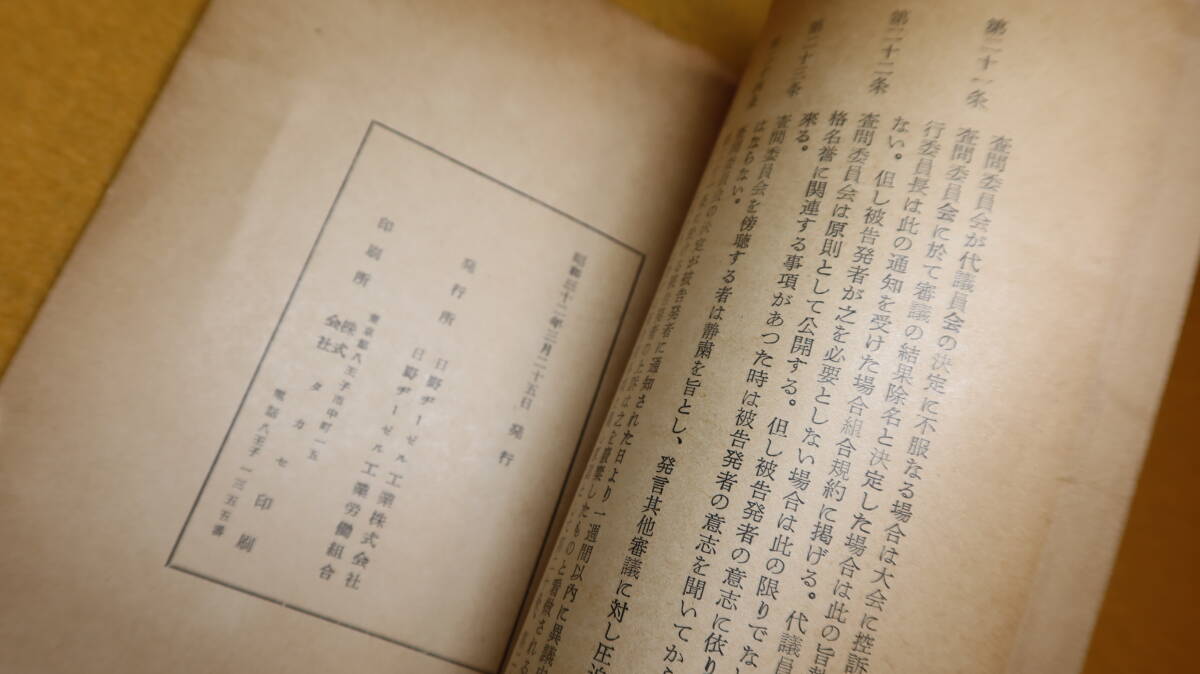 第二十一条
査問委員会が代議員会の決定に不服なる場合は大会に控訴
第二十二条
査問委員会に於て審議の結果除名と決定した場合は此の旨
行委員長は此の通知を受けた場合組合規約に掲げる。代議員
ない。但し被告発者が之を必要としない場合は此の限りでな
第二十三条
査問委員会は原則として公開する。但し被告発者の意志に依り
格名誉に関連する事項があつた時は被告発者の意志を聞いてから
来る。
査問委員会を傍聴する者は静粛を旨とし、発言其他審議に対し圧迫
はならない。
が被告発者に通知された日より一週間以内に異議
昭和三十二年三月二十五日発行
発行所 日野ヂーゼル工業株式会社
日野ヂーゼル工業労働組合
東京都八王子市中町一五
印刷所 株式会社 タカセ印刷
電話八王子一三五五番